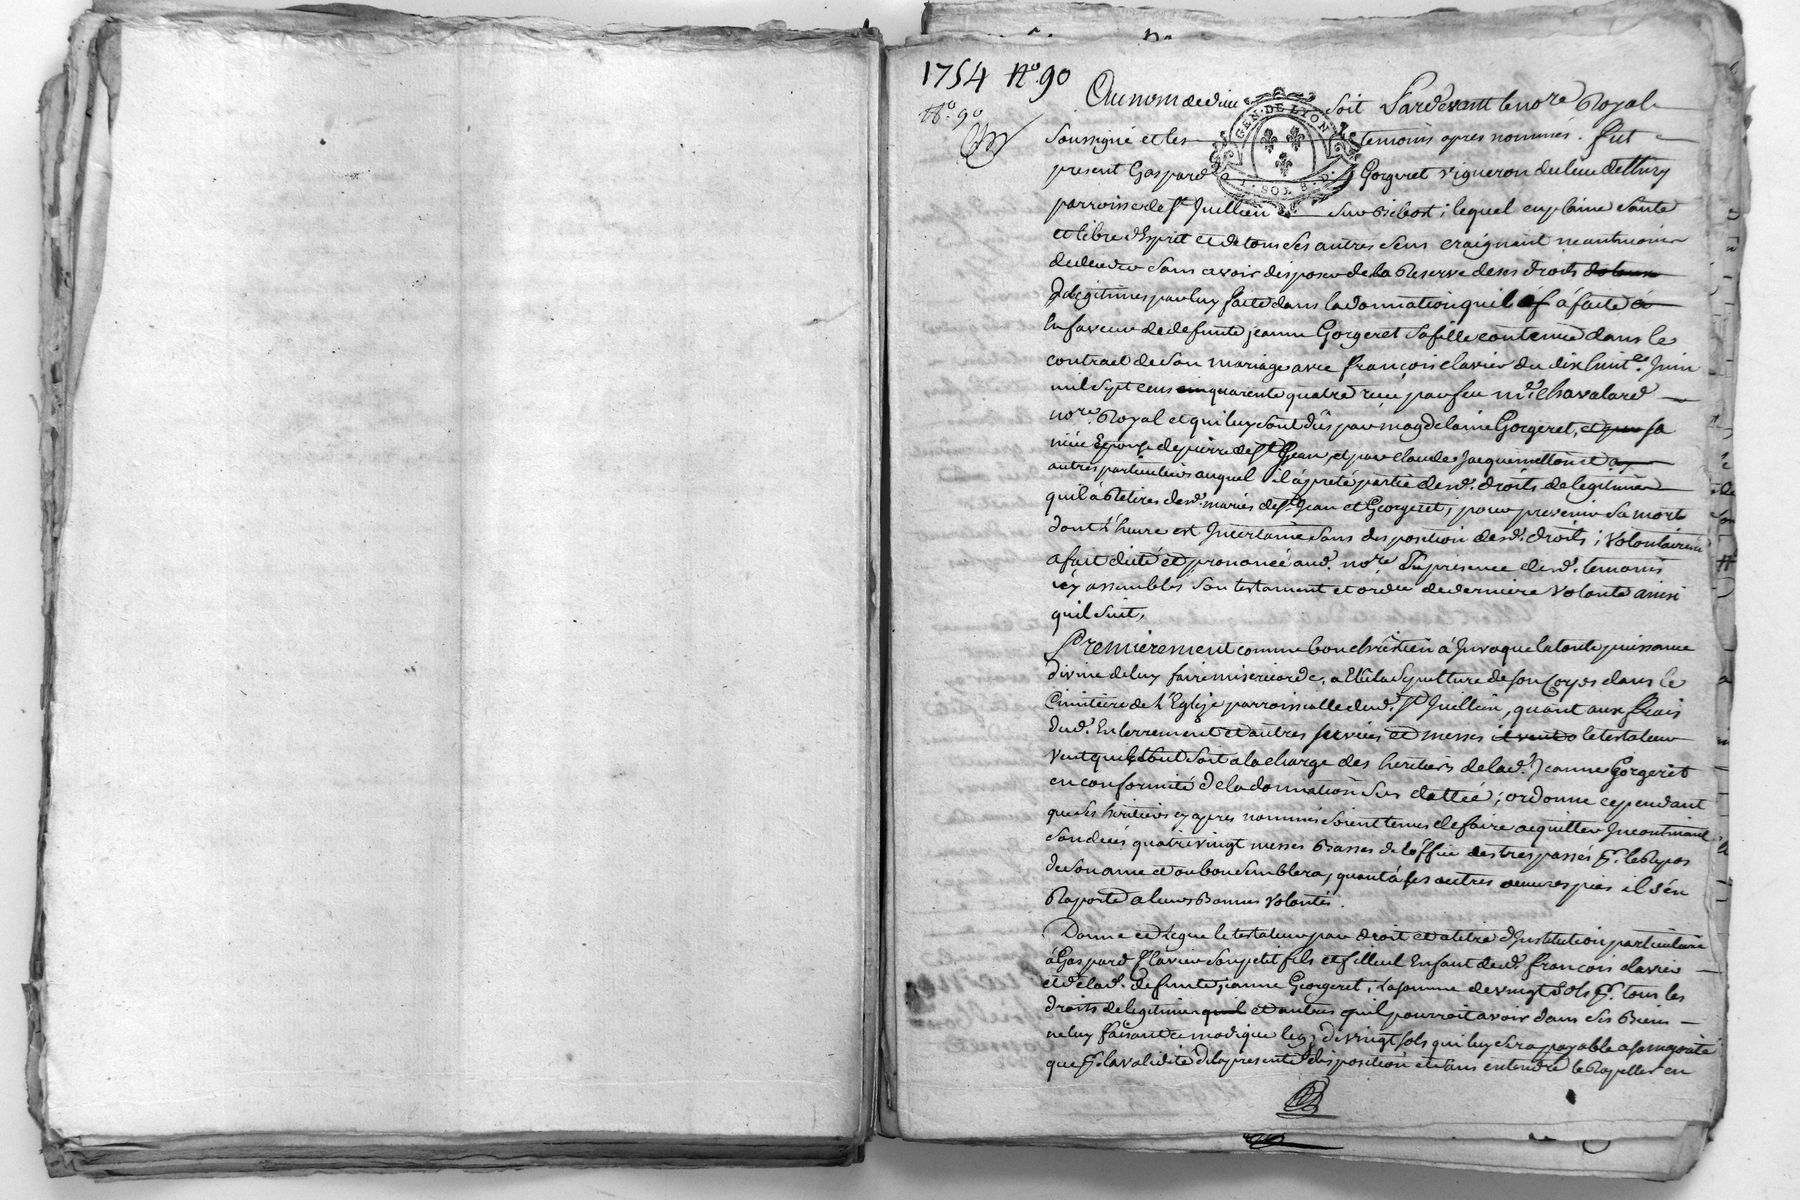 1754 No. 90
No. 90
Au nom de dieu soit Pardevant le nore Royal
GEN. DE LYON
SOL
soussigné et les temoins apres nommés. fut
present Gaspard Gorgeret vigneron du lieu de Thivy
parroisse de St Juillien sur Bibost ; lequel en plaine santé
et libre d'Esprit et de tous ses autres sens craignant neantmoins
de deceder sans avoir disposer de la Reserve de ses droits
de legitimes par luy faite dans la donnation qu'il a faite
En faveur de defunte jeanne Gorgeret sa fille contenue dans le
contract de son mariage avec françois clavier du dix huite. Juin
mil sept cens quarente quatre reçu par feu me. chavalard
nore. Royal et qui luy sont dûs par magdelaine Gorgeret, et sa
niéce Epouse de pierre de St Jean, et par claude Jacquemetton et
autres particuliers auquel il a preté partie desd. droits de legitimes
qu'il à Retires desd. mariés de St Jean et Gorgeret ; pour prevenir sa mort
dont l'heure est Incertaine sans disposition desd. droits ; volontairemt
a fait dicté et prononcé aud. nore. En presence desd. temoins
icy assemblés son testament et ordre de derniere volonté ainsi
quil suit,
Premierement comme bon chrêtien à Invoque la toute puissance
divine de luy faire misericorde, a Elû la sepulture de son Corps dans le
Cimitiere de L'Eglise parroissialle dud. St Juillien, quant aux frais
dud. Enterrement et autres services et messes le testateur
veut que le tout soit a la charge des heritiers de lad. Jeanne Gorgeret
en conformité de la donnation sus dattée ; ordonne cependant
que ses heritiers cy apres nommés soient tenus de faire acquitter Incontinant
son decés quatre vingt messes Basses de l'office des trespassés pr. le Repos
de son ame et ou bon semblera, quant à ses autres oeuvres pies il s'en
Raporte a leurs Bonnes volontés.
Donne et Legue le testateur par droit et a titre d'Institution particuliere
à Gaspard Clavier son petit fils et filleul Enfant dud. françois clavier
et de lad. defunte jeanne Gorgeret, La somme de vingt sols pr. tous les
droits de legitimes et autres qu'il pourroit avoir dans ses Biens
ne luy faisant ce modique legs de vingt sols qui luy sera payable a sa majorité
que pr. la validité de la presente disposition et sans entendre le Rapeller en